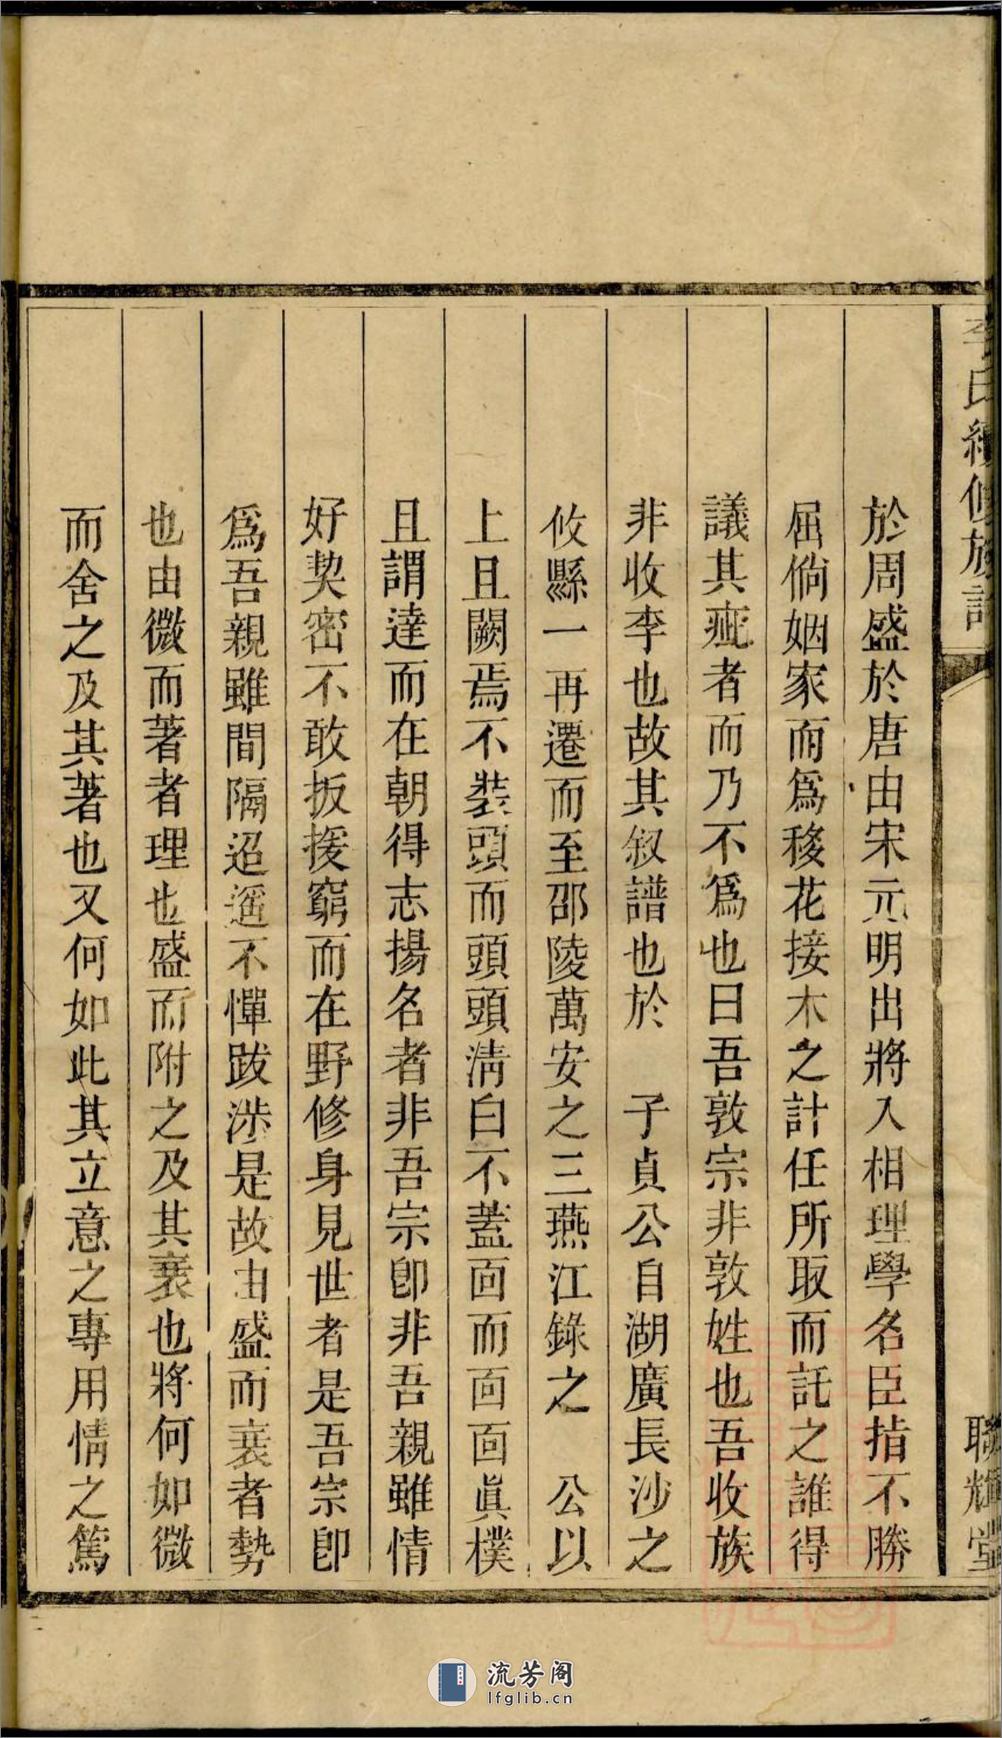 李氏續修族譜
聯輝堂
於周盛於唐由宋元明出將入相理學名臣指不勝
屈倘姻家而爲移花接木之計任所取而託之誰得
議其疵者而乃不爲也曰吾敦宗非敦姓也吾收族
非收李也故其叙譜也於 子貞公自湖廣長沙之
攸縣一再遷而至邵陵萬安之三燕江錄之 公以
上且闕焉不裝頭而頭頭淸白不蓋面而面面眞樸
且謂達而在朝得志揚名者非吾宗卽非吾親雖情
好契密不敢扳援窮而在野修身見世者是吾宗卽
爲吾親雖間隔迢遥不憚跋涉是故由盛而衰者勢
也由微而著者理也盛而附之及其衰也將何如微
而舍之及其著也又何如此其立意之專用情之篤
流芳阁
lfglib.cn